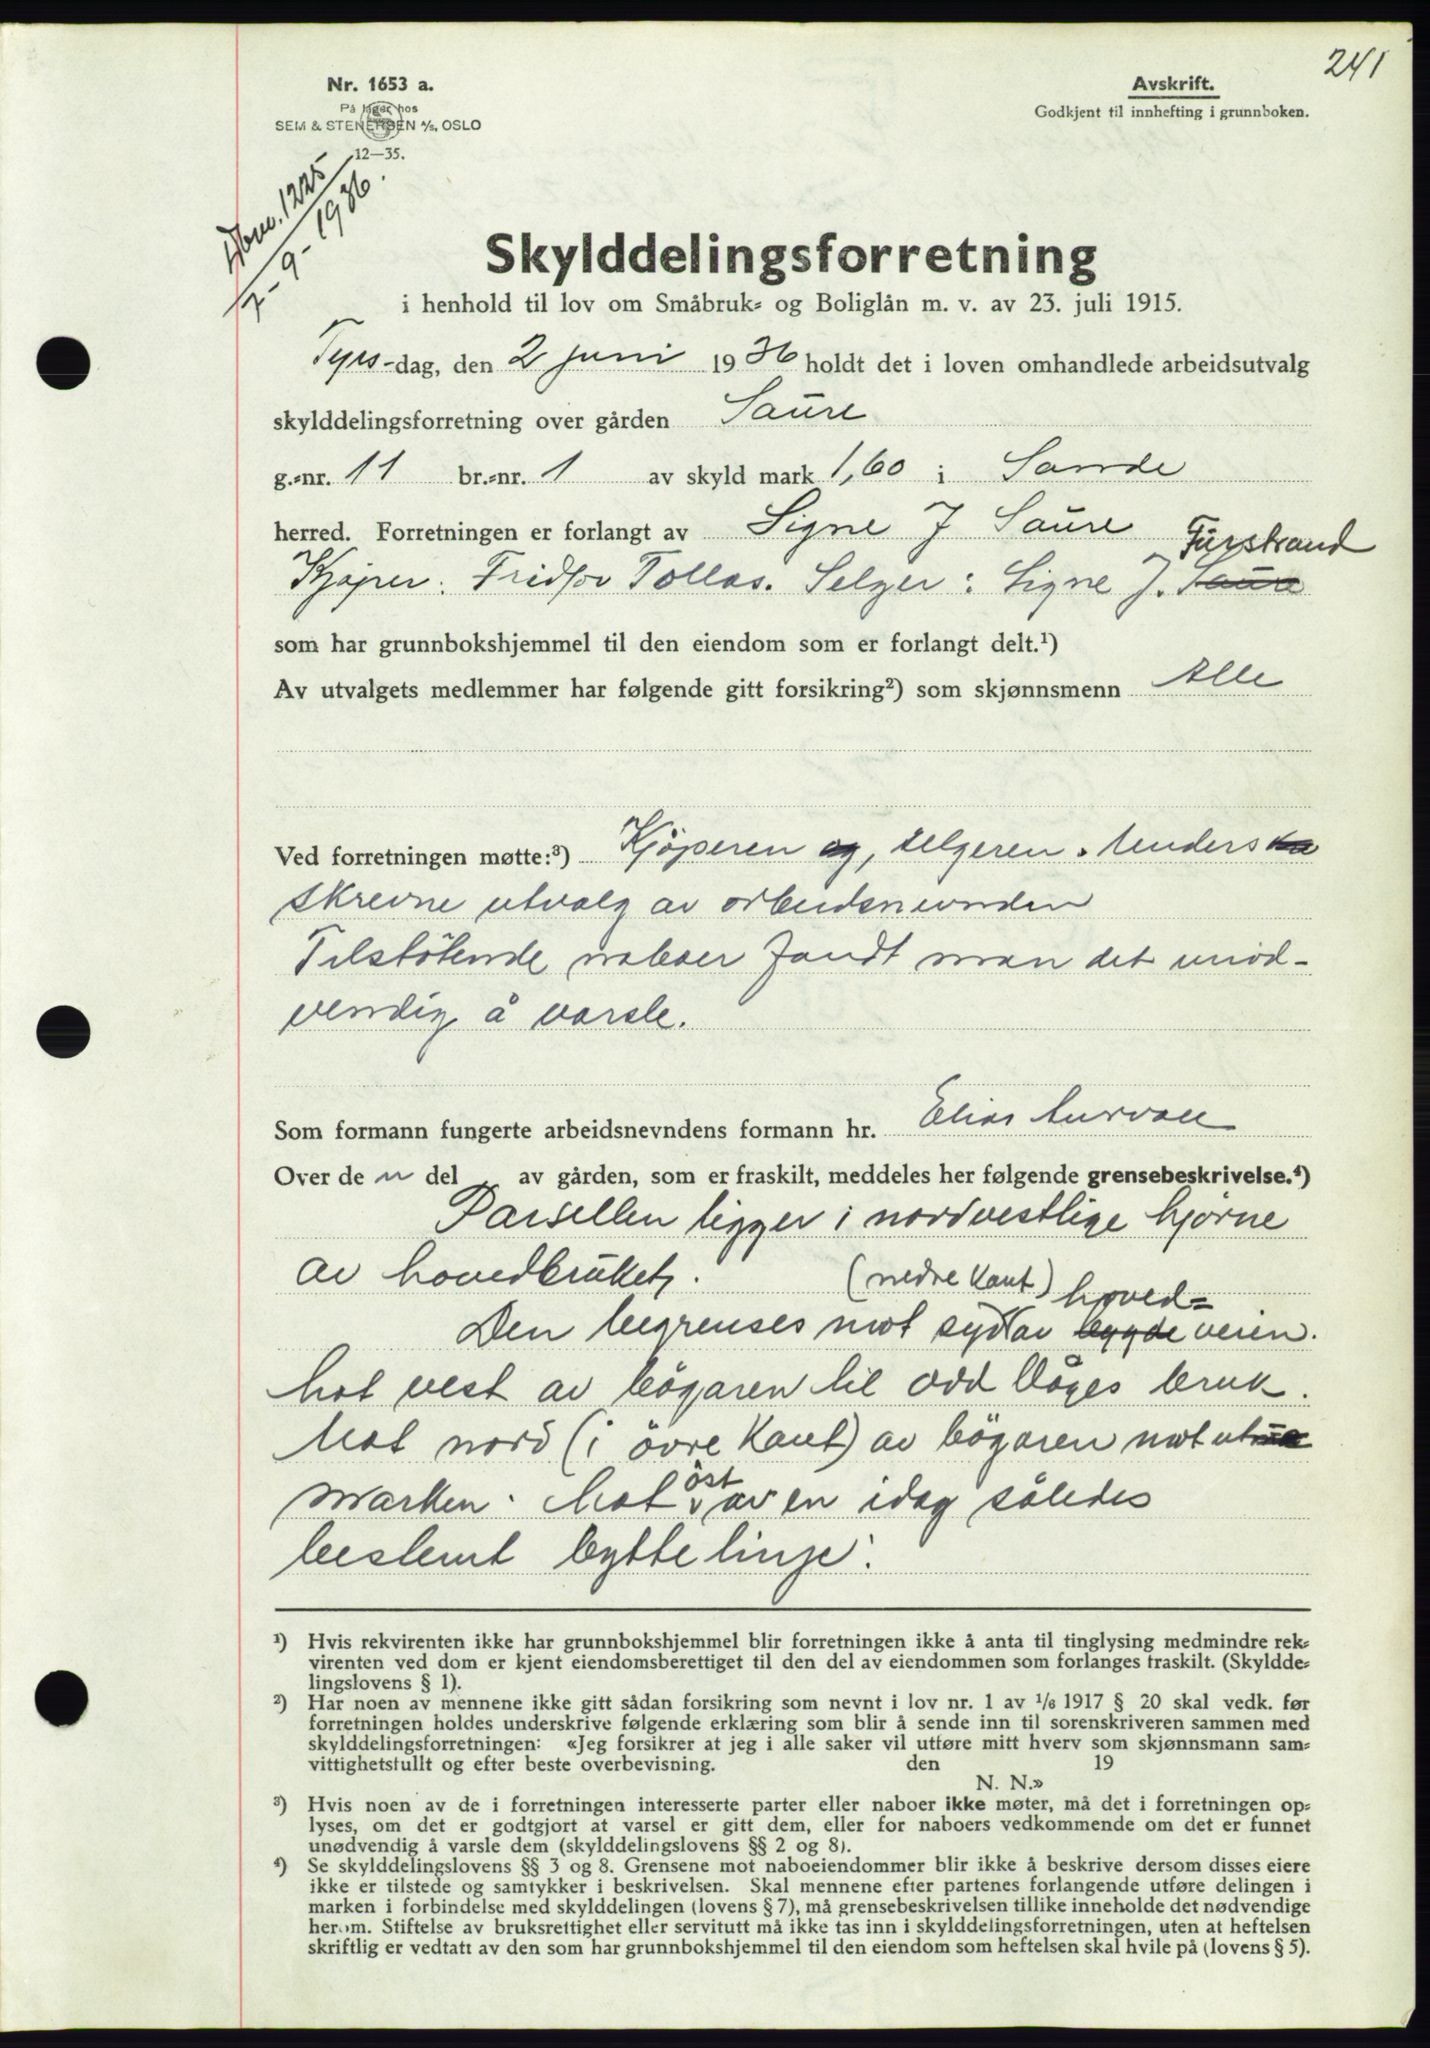 241
Nr. 1653 a.
På lager hos
SEM & STENERSEN A/S, OSLO
12—35.
Avskrift.
Godkjent til innhefting i grunnboken.
Dbnr. 1225
7-9-1936.
Skylddelingsforretning
i henhold til lov om Småbruk- og Boliglån m. v. av 23. juli 1915.
Tyrs-dag, den 2 juni 1936 holdt det i loven omhandlede arbeidsutvalg
skylddelingsforretning over gården Saure
g.-nr. 11 br.-nr. 1 av skyld mark 1,60 i Sande
herred. Forretningen er forlangt av Signe J Saure
Furstrand
Kjøper: Fridtjov Tollås. Selger: Signe J. Saure
som har grunnbokshjemmel til den eiendom som er forlangt delt.¹)
Av utvalgets medlemmer har følgende gitt forsikring²) som skjønnsmenn Alle
Ved forretningen møtte:³) Kjöperen og, selgeren. Unders
skrevne utvalg av arbeidsnevnden
Tilstötende naboer fandt man det unöd-
vendig å varsle.
Som formann fungerte arbeidsnevndens formann hr. Elias Aurvoll
Over de n del av gården, som er fraskilt, meddeles her følgende grensebeskrivelse.⁴)
Parsellen ligger i nordvestlige hjørne
av hovedbruket.
(nedre Kant) hoved=
Den begrenses mot syd av bygde veien.
Mot vest av bögaren til Odd Våges bruk.
Mot nord (i övre Kant) av bögaren mot ut
marken. Mot öst av en idag således
bestemt byttelinje:
¹) Hvis rekvirenten ikke har grunnbokshjemmel blir forretningen ikke å anta til tinglysing medmindre rek-
virenten ved dom er kjent eiendomsberettiget til den del av eiendommen som forlanges fraskilt. (Skyldde-
lingslovens § 1).
²) Har noen av mennene ikke gitt sådan forsikring som nevnt i lov nr. 1 av 1/6 1917 § 20 skal vedk. før
forretningen holdes underskrive følgende erklæring som blir å sende inn til sorenskriveren sammen med
skylddelingsforretningen: «Jeg forsikrer at jeg i alle saker vil utføre mitt hverv som skjønnsmann sam-
vittighetsfullt og efter beste overbevisning. den 19
N. N.»
³) Hvis noen av de i forretningen interesserte parter eller naboer ikke møter, må det i forretningen op-
lyses, om det er godtgjort at varsel er gitt dem, eller for naboers vedkommende om det er funnet
unødvendig å varsle dem (skylddelingslovens §§ 2 og 8).
⁴) Se skylddelingslovens §§ 3 og 8. Grensene mot naboeiendommer blir ikke å beskrive dersom disses eiere
ikke er tilstede og samtykker i beskrivelsen. Skal mennene efter partenes forlangende utføre delingen i
marken i forbindelse med skylddelingen (lovens § 7), må grensebeskrivelsen tillike inneholde det nødvendige
herom. Stiftelse av bruksrettighet eller servitutt må ikke tas inn i skylddelingsforretningen, uten at heftelsen
skriftlig er vedtatt av den som har grunnbokshjemmel til den eiendom som heftelsen skal hvile på (lovens § 5).